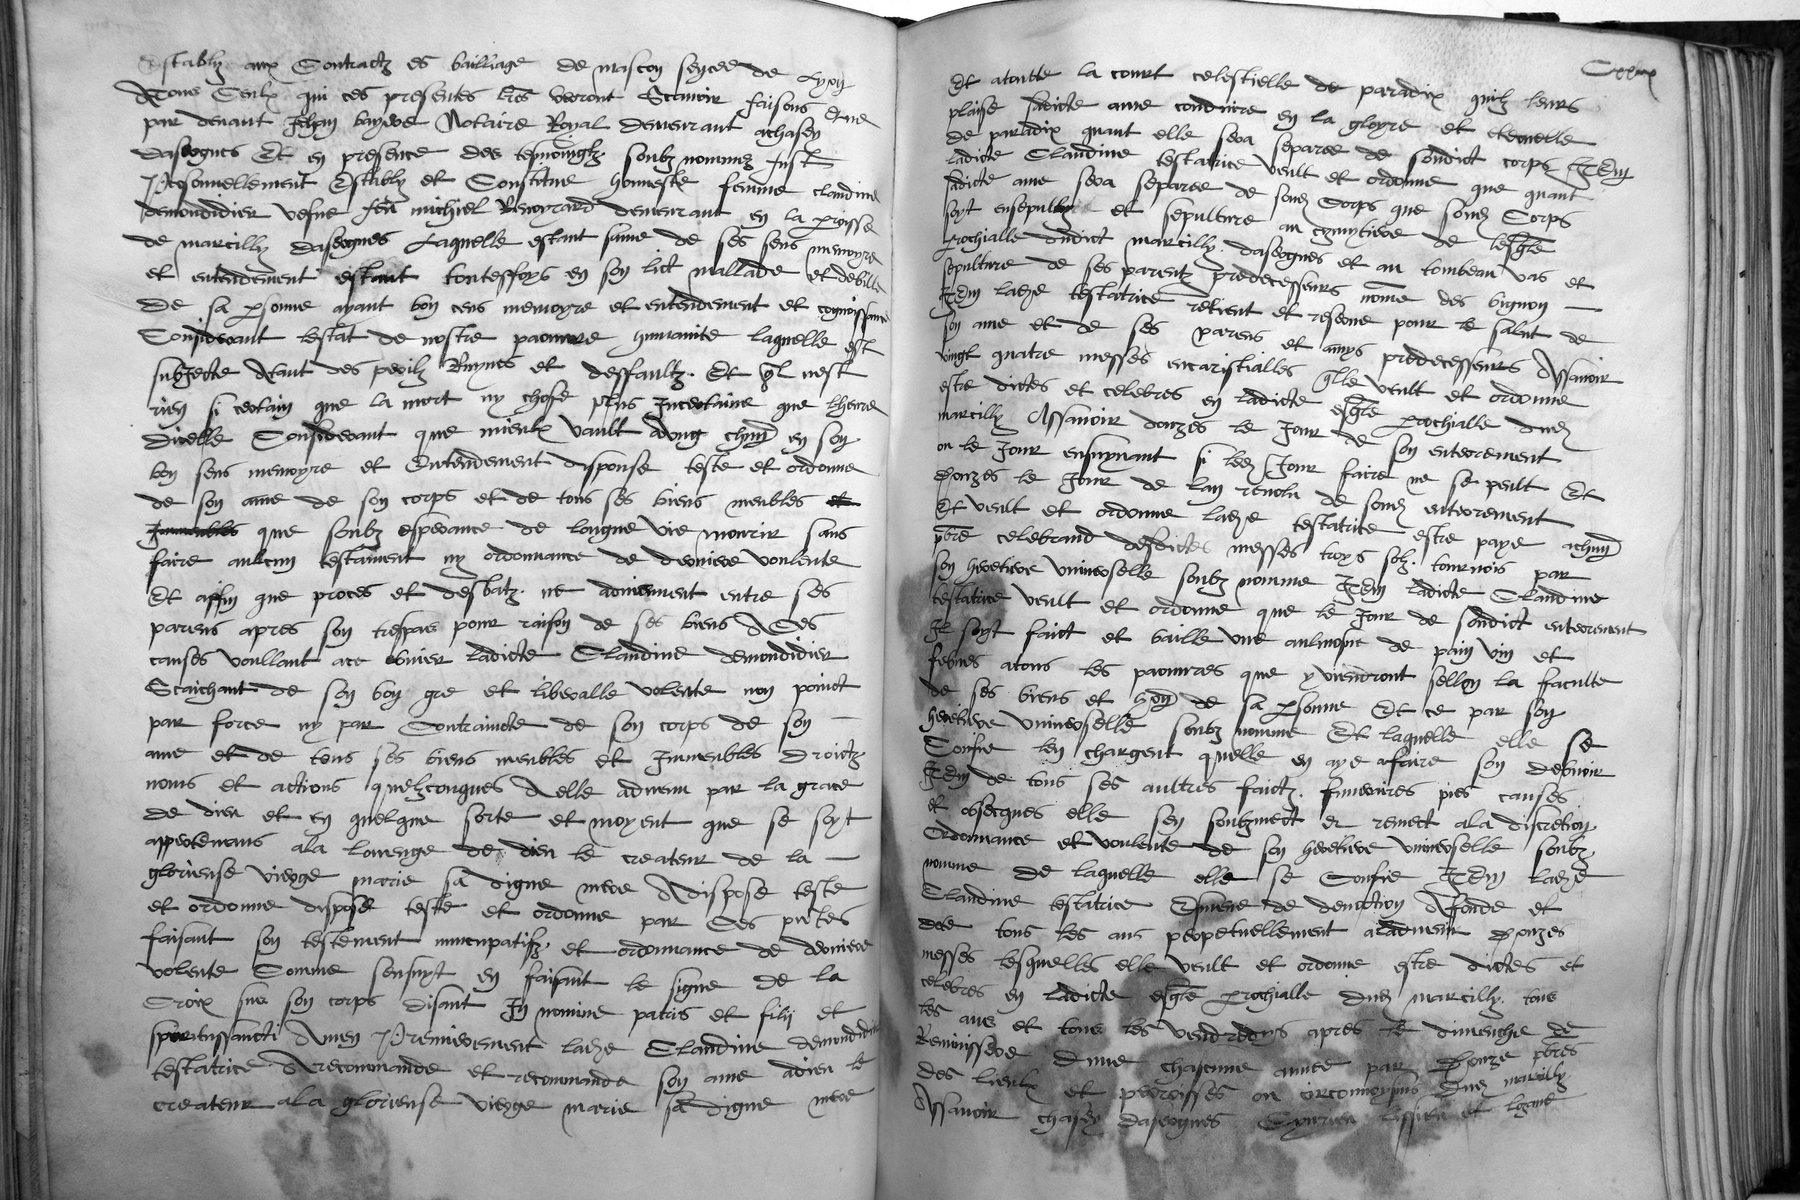 Establiz aux Contractz es bailliage de mascon senes de Lyon
Atous Ceulx qui ces presentes lres verront Scavoir faisons que
par devant Jehan bayere Notaire Royal demeurant achasey
dasergues Et en presence des tesmoingtz soubz nommez fust
Personnellement Establye et Constitue honneste femme claudine
demondidier vefve feu michiel Remyrard demeurant en la proisse
de marcilly dasergues Laquelle estant saine de ses sens memoyre
et entendement estant toutesfoys en son lict mallade et debilite
de sa psonne ayant bon cens memoyre et entendement et cognoissance
Considerant lestat de nostre paouvre humanite laquelle est
subjecte atant des perilz Ruynes et deffaultz. Et ql nest
rien si certain que la mort ny chose plus Incertaine que lheure
dicelle Considerant que mieulx vault adung chun en son
bon sens memoyre et Entendement disponse teste et ordonne
de son ame de son corps et de tous ses biens meubles et
Immeubles que soubz esperance de longue vie mourir sans
faire aulcun testament ny ordonnance de derniere voulente
Et affin que proces et desbatz ne adviennent entre ses
parens apres son trespas pour raison de ses biens A Ces
causes voullant ace obvier Ladicte Claudine demondidier
Scaichant de son bon gre et liberalle volente non poinct
par force ny par Contraincte de son corps de son
ame et de tous ses biens meubles et Immeubles droictz
noms et actions quelzconques A elle advenu par la grace
de dieu et en quelque sorte et moyent que se soyt
appertenans ala louenge de dieu le createur de la
glorieuse vierge marie sa digne mere A dispose teste
et ordonne dispose teste et ordonne par Ces pntes
faisant son testement nuncupatifz et ordonnance de derniere
volente Comme sensuyt en faisant le signe de la
Croix sur son corps disant In nomine patris et filii et
spiritussancti Amen Premierement ladze Claudine demondidier
testatrice A recommande et recommande son ame adieu le
createur ala glorieuse vierge marie sa digne mere
Et atoutte la court celestielle de paradix quilz leurs
plaise ladicte ame conduire en la gloyre et eternelle
de paradix quant elle sera separee de sondict corps ITEM
ladicte Claudine testatrice veult et ordonne que quant
sadicte ame sera separee de sond Corps que sond Corps
soyt ensepulture et sepulture au cymytiere de lesgle
prochialle dudict marcilly dasergues et au tombeau vas et
sepulture de ses parentz predecesseurs nomme des bignon
ITEM ladze testatrice retient et reserve pour le salut de
son ame et de ses parens et amys predecesseurs Assavoir
vingt quatre messes eucaristialles qlle veult et ordonne
estre dictes et celebres en ladicte esgle prochialle dud
marcilly Assavoir douzes le Jour de son enterrement
ou le Jour ensuyvant si led Jour faire ne se peult Et
douzes le Jour de lan revolu de sond enterrement
Et veult et ordonne ladze testatrice estre paye achun
pbre celebrand desdictes messes troys solz. tournois par
son heretiere universelle soubz nomme ITEM ladicte Claudine
testatrice veult et ordonne que le Jour de sondict enterrement
Il soyt faict et baille une aulmosne de pain vin et
febves atous les paouvres que y viendront sellon la faculte
de ses biens et hon de sa psonne Et ce par son
heretiere universelle soubz nomme Et laquelle elle se
Confie len chargent quelle en aye afaire son debvoir
ITEM de tous ses aultres faictz. funeraires pies causes
et obsecques elle sen soubzmect et remect ala discretion
Ordonnance et voulente de son heretiere universelle soubz
nomme de laquelle elle se Confie ITEM ladze
Claudine testatrice Esmeue de devotion A fonde et
tous les ans perpetuellement aladvenir douzes
messes lesquelles elle veult et ordonne estre dictes et
celebres en ladicte esgle prochialle dud marcilly. tous
les ans et tous les vendredys apres le dimenche de
Reminiscere dune chascune annee par douze pbres
des lieulx et parroisses ou circonvoysins dud marcilly.
Assavoir chasey dasergues Lissieu et Lozane